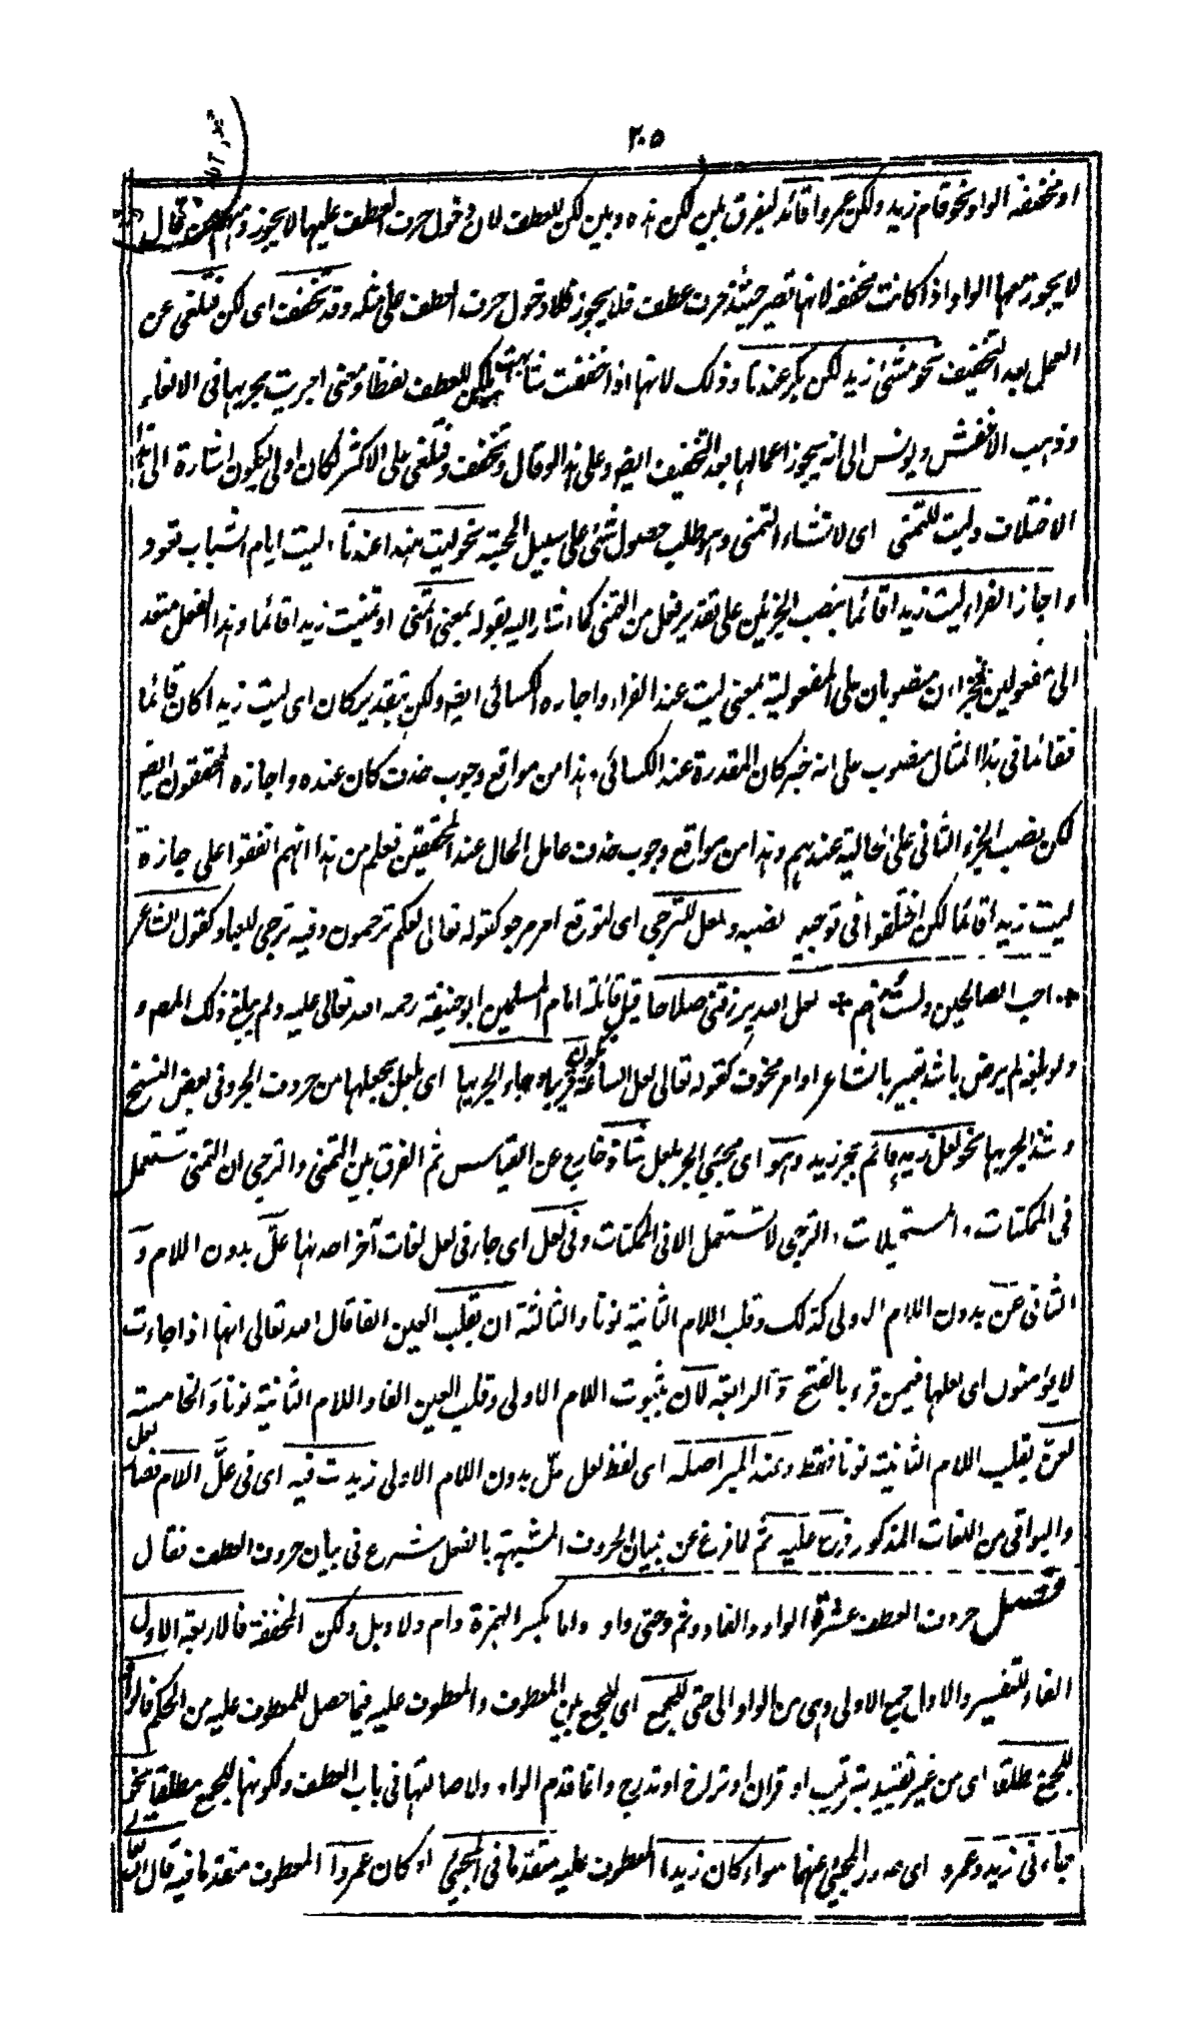 ٢٠٥
او مخففة الواو نحو قام زيد ولكن عمروا قائد ليفرق بين لكن هذه وبين لكن للعطف لان دخول حرف العطف عليها لا يجوز قال
لا يجوز معها الواو اذا كانت مخففة لانها تصير حينئذ حرف عطف فلا يجوز دخول حرف العطف على مثله وقد تخفف اى لكن فتلغى عن
العمل بعد التخفيف نحو مشى زيد لكن بكر عندنا وذلك لانها اذا خففت شابهت لكن للعطف لفظا ومعنى اجريت مجريها فى الالغاء
وذهب الاخفش ويونس الى انه يجوز اعمالها بعد التخفيف ايضا وعلى هذا لو قال وتخفف وفتلغى على الاكثر لكان اولى ليكون اشارة الى هذا
الاختلاف وليت للتمنى اى لانشاء التمنى وهو طلب حصول شئ على سبيل المحبة نحو ليت هندا عندنا، ليت ايام الشباب تعود
واجاز الفراء ليت زيدا قائما بنصب الجزئين على تقدير فعل من التمنى كما اشار اليه بقوله بمعنى اتمنى او تمنيت زيدا قائما وهذا الفعل متعد
الى مفعولين فالجزءان منصوبان على المفعولية بمعنى ليت عند الفراء واجازه الكسائى ايضا ولكن بتقدير كان اى ليت زيدا كان قائما
فقائما فى هذا المثال منصوب على انه خبر كان المقدرة عند الكسائى، هذا من مواقع وجوب حذف كان عنده واجازه المحققون ايضا
لكن بنصب الجزء الثانى على الحالية عندهم وهذا من مواقع وجوب حذف عامل الحال عند المحققين فعلم من هذا انهم اتفقوا على جازة
ليت زيدا قائما لكن اختلفوا فى توجيه نصبه ولعل للترجى اى لتوقع امر مرجو كقوله تعالى لعلكم ترحمون وفيه ترجى للعباد كقول الشاعر
+ احب الصالحين ولست منهم + لعل الله يرزقنى صلاحا قيل قائله امام المسلمين ابو حنيفة رحمه الله تعالى عليه ولم يبلغ ذلك المص و
ولو بلغه لم يرض باشد تغيير بالشاعر او امر مخوف كقوله تعالى لعل الساعة تكون قريبا وجاء الجر بها اى بلعل بجعلها من حروف الجر وفى بعض النسخ
وشذ الجر بها نحو لعل زيد قائم بجر زيد وهو اى مجيئ الجر بلعل شاذ خارج عن القياس ثم الفرق بين التمنى والترجى ان التمنى تستعمل
فى الممكنات، المستحيلات، الترجى لا تستعمل الا فى الممكنات وفى لعل اى جاز فى لعل لغات آخر احدهنا علّ بدون اللام و
الثانى عنّ بدون اللام الاولى كذلك وقلب اللام الثانية نونا والثالثة ان بقلب العين الفا قال الله تعالى انها اذا جاءت
لا يؤمنون اى لعلها فيمن قرء بالفتح و الرابعة لان بثبوت اللام الاولى وقلب العين الفا واللام الثانية نونا والخامسة
لعنّ بقلب اللام الثانية نونا فقط وعند المبر اصله اى لفظ لعل علّ بدون اللام الاولى زيدت فيه اى فى علّ اللام فصار لعل
والبواقى من اللغات المذكور فرع عليه ثم لما فرغ عن بيان الحروف المشبهة بالفعل شرع فى بيان حروف العطف فقال
فصل حروف العطف عشرة الواو والفاء وثم وحتى واو واما بكسر الهمزة وام ولا وبل ولكن المخففة فالاربعة الاول
الفاء للتفسير والاول جمع الاولى وهى من الواو الى حتى للجمع اى للجمع بين المعطوف والمعطوف عليه فيما حصل للمعطوف عليه من الحكم فالواو
للجمع مطلقا اى من غير تقييد بترتيب او قران او تراخ او تدريج وانما قدم الواو ولاصالتها فى باب العطف ولكونها للجمع مطلقا نحو
جاءنى زيد وعمرو اى صدر المجيئ عنهما سواء كان زيدا المعطوف عليه متقدما فى المجيئ او كان عمروا المعطوف متقدما فيه قال الله